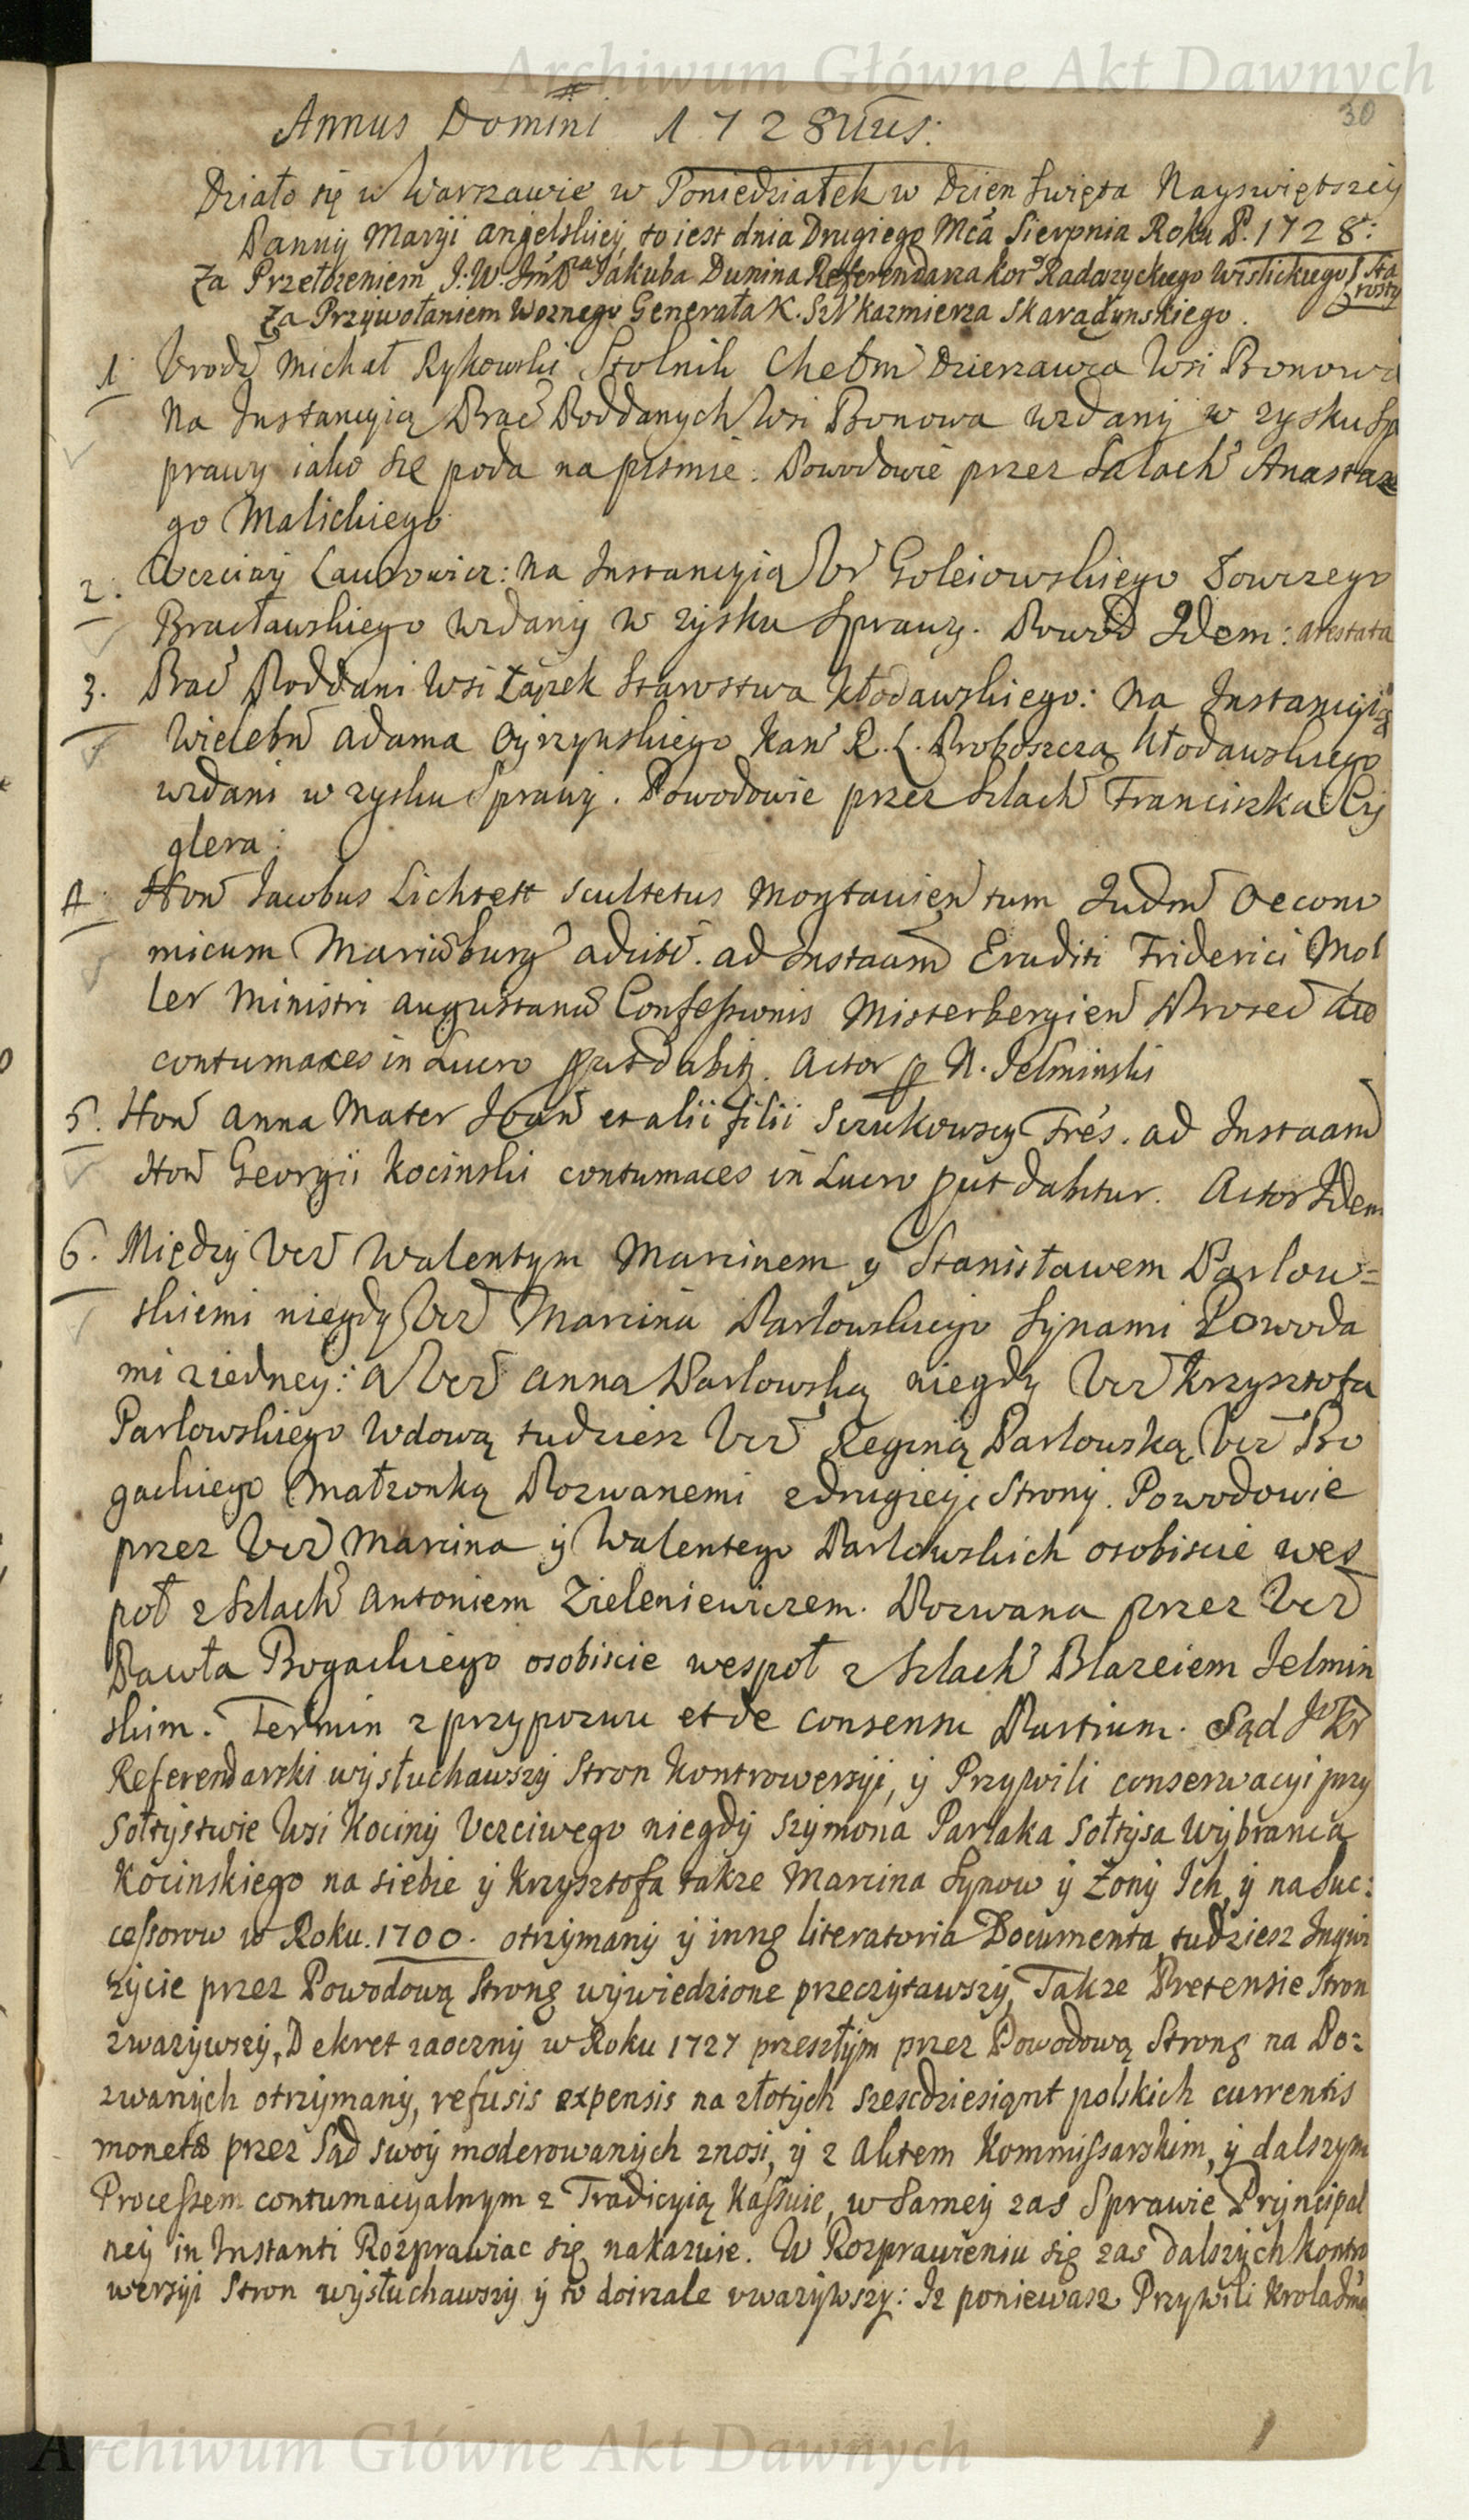 Archiwum Główne Akt Dawnych
30
Annus Domini 1728vus.
Działo się w Warszawie w Poniedziałek w Dzien Swięta Nayswiętszey
Panny Maryi anjelskiey, to iest dnia Drugiego Mca Sierpnia Roku P. 1728:
Za Przełożeniem J: W. Jmć Pana Jakuba Dunina Referendarza Kor Radoszyckiego Wislickiego Starosty
Za Przywołaniem Woznego Generała K. Szl Kazmierza Skaradynskiego.
1 Urodz Michał Rykowski Stolnik Chełm Dzierzawca Wsi Bonowa
Na Instancyią Prac Poddanych Wsi Bonowa wzdany w zysku Sp
prawy iako się poda na pismie. Powodowie przez Salach Anastaze
go Malickiego
2. Uczciwy Laurowicz: Na Instancyią Ur Goleiowskiego Łowczego
Bracławskiego wzdany w zysku Sprawy. Powod Idem: atestata
3. Prac Poddani Wsi Łązek Starostwa Kłodawskiego: Na Instancyią
Wielebn Adama Oyrzynskiego Kan R. L. Proboszcza Kłodawskiego
wzdani w zysku Sprawy. Powodowie przez Szlach Franciszka Cy
glera:
4. Hon Jacobus Lichtett Scultetus Montavien tum Judm Oecono
micum Mariæburg adcit. ad Instaam Eruditi Friderici Mol
ler Ministri Augustanæ Confessionis Misterbergien Proseć
contumaces in Lucro put dabit. Actor p N. Jelminski
5. Hon Anna Mater Joan et alii filii Sczukowscy Fres. ad Instaam
Hon Georgii Kocinski contumaces in Lucro put dabitur. Actor Idem
6. Między Ucz Walentym Marcinem y Stanisławem Parlow=
skiemi niegdy Ucz Marcina Parlowskiego Synami Powoda
mi z iedney: a Ucz Anna Parlowską niegdy Ucz Krzysztofa
Parlowskiego Wdową tudziesz Ucz Reginą Parlowską, Ucz Bo
gackiego Małzonką Pozwanemi z drugiey Strony. Powodowie
przez Ucz Marcina y Walentego Parlowskich osobiscie wes
poł z Szlach Antoniem Zieleniewiczem. Pozwana przez Ucz
Pawła Bogackiego osobiscie wespoł z Szlach Blazeiem Jelmin
skim. Termin z przypozwu et de consensu Partium. Sąd JKr
Referendarski wysłuchawszy Stron Kontrowersyi, y Przywili conserwacyi przy
Sołtystwie Wsi Kociny Uczciwego niegdy Szymona Parlaka Sołtysa Wybranca
Kocinskiego na siebie y Krzysztofa takze Marcina Synow y Zony Ich, y na Suc:
cessorow w Roku. 1700. otrzymany y inne literatoria Documenta, tudziesz Inqwi
zycie przez Powodową Stronę wywiedzione przeczytawszy, Takze Pretensie Stron
zwazywszy, Dekret zaoczny w Roku 1727 przeszłym przez Powodową Stronę na Po:
zwanych otrzymany, refusis expensis na złotych szescdziesiąnt polskich currentis
monetæ przez Sąd swoy moderowanych znosi, y z Aktem Kommissarskim, y dalszym
Processem contumacyalnym z Tradicyią Kassuie, w Samey zas Sprawie Pryncipal
ney in Instanti Rozprawiac się nakazuie. W Rozprawieniu się zas dalszych kontro
wersyi Stron wysłuchawszy y to doirzale uwazywszy: Iz poniewasz Przywili Krola Jmć
Archiwum Główne Akt Dawnych